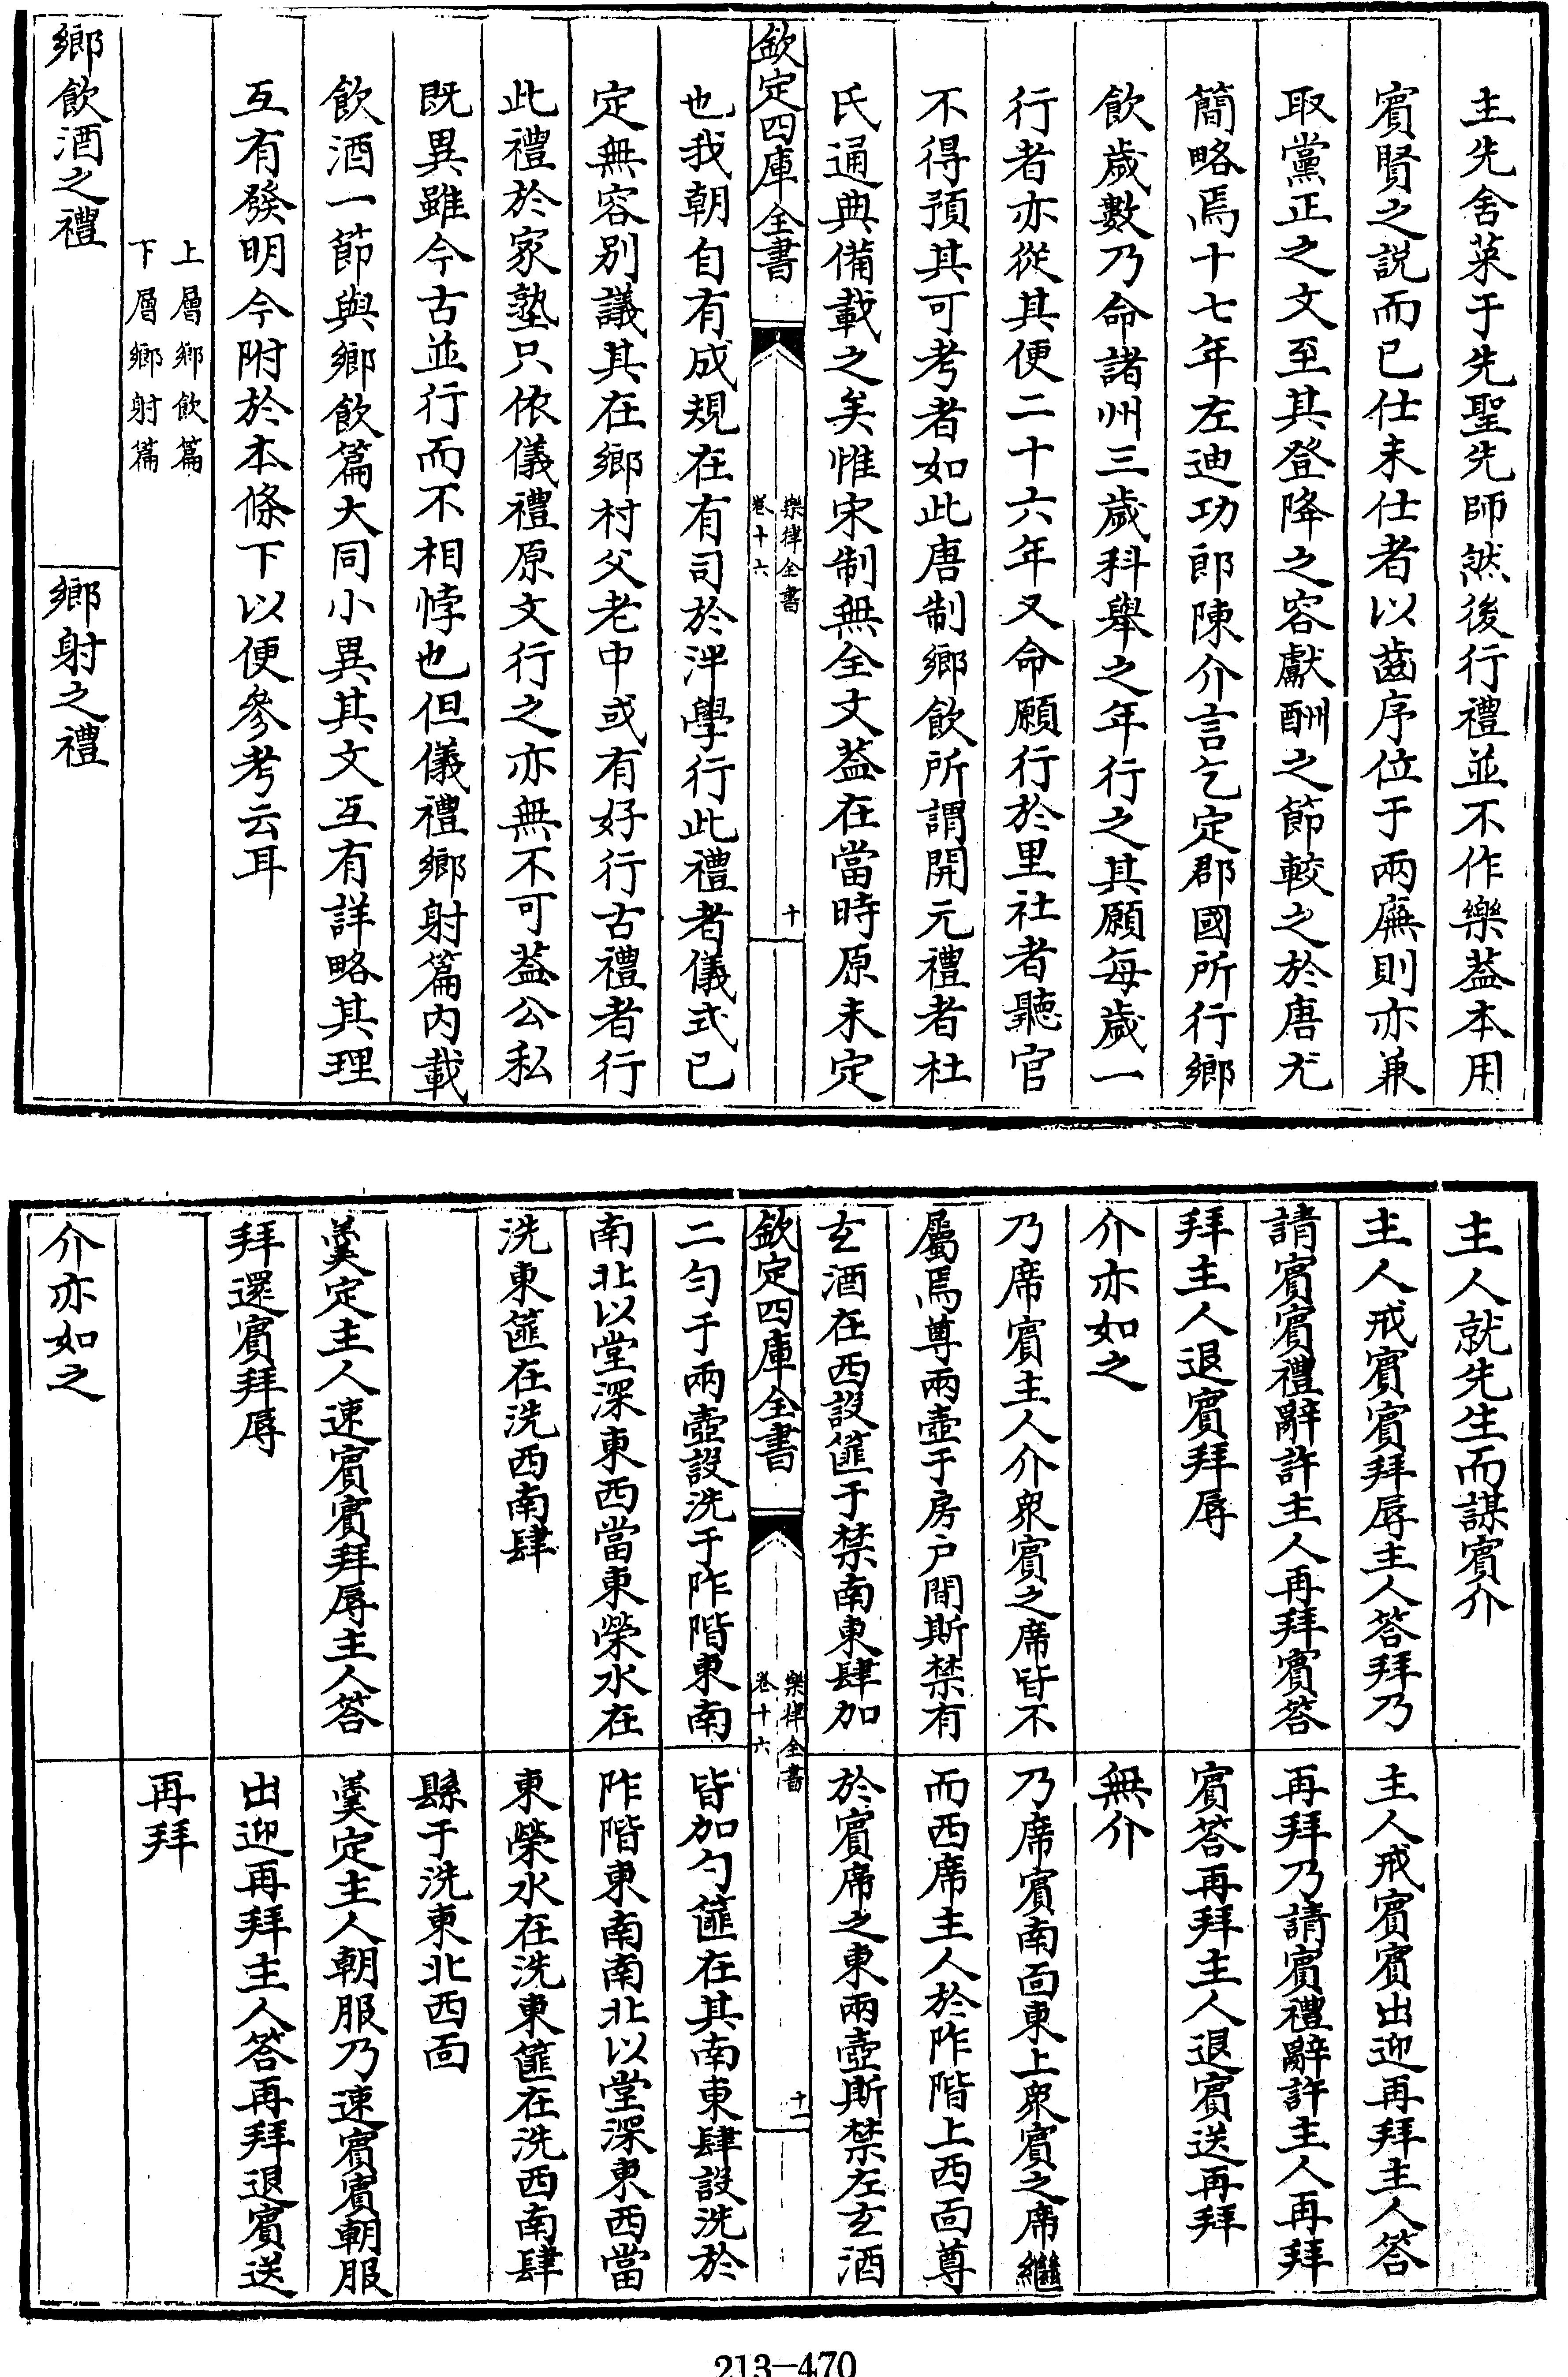 主先舍菜于先聖先師然後行禮並不作樂葢本用
賓賢之説而已仕未仕者以齒序位于兩廡則亦兼
取黨正之文至其登降之容獻酬之節較之於唐尤
簡略焉十七年左迪功郎陳介言乞定郡國所行鄉
飲歲數乃命諸州三歲科舉之年行之其願每歲一
行者亦從其便二十六年又命願行於里社者聽官
不得預其可考者如此唐制鄉飲所謂開元禮者杜
氏通典備載之矣惟宋制無全文葢在當時原未定
欽定四庫全書
樂律全書
卷十六
十
也我朝自有成規在有司於泮學行此禮者儀式已
定無容别議其在鄉村父老中或有好行古禮者行
此禮於家塾只依儀禮原文行之亦無不可葢公私
既異雖今古並行而不相悖也但儀禮鄉射篇内載
飲酒一節與鄉飲篇大同小異其文互有詳略其理
互有發明今附於本條下以便參考云耳
上層鄉飲篇
下層鄉射篇
鄉飲酒之禮
鄉射之禮
主人就先生而謀賓介
主人戒賓賓拜辱主人答拜乃
請賓賓禮辭許主人再拜賓答
拜主人退賓拜辱
介亦如之
乃席賓主人介衆賓之席皆不
屬焉尊兩壺于房户間斯禁有
玄酒在西設篚于禁南東肆加
欽定四庫全書
樂律全書
卷十六
十一
二勺于兩壺設洗于阼階東南
南北以堂深東西當東榮水在
洗東篚在洗西南肆
羮定主人速賓賓拜辱主人答
拜還賓拜辱
介亦如之
主人戒賓賓出迎再拜主人答
再拜乃請賓禮辭許主人再拜
賓答再拜主人退賓送再拜
無介
乃席賓南面東上衆賓之席繼
而西席主人於阼階上西面尊
於賓席之東兩壺斯禁左玄酒
皆加勺篚在其南東肆設洗於
阼階東南南北以堂深東西當
東榮水在洗東篚在洗西南肆
縣于洗東北西面
羮定主人朝服乃速賓賓朝服
出迎再拜主人答再拜退賓送
再拜
213-470